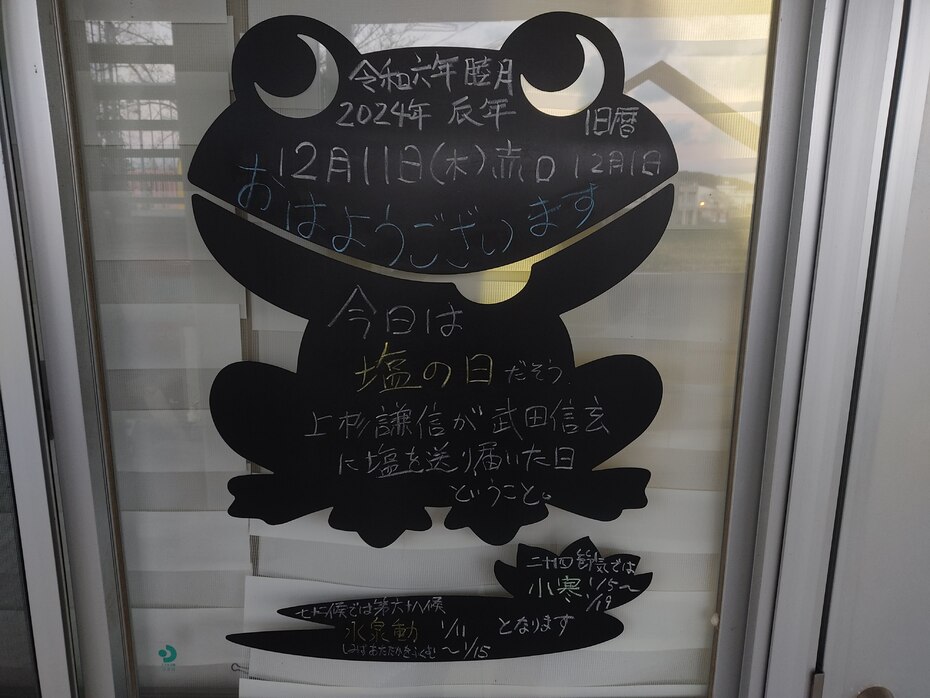 令和六年 睦月
2024年 辰年
旧暦
12月11日(木)赤口 12月1日
おはようございます
今日は
塩の日 だそう
上杉謙信が武田信玄
に塩を送り届いた日
ということ。
二十四節気では
小寒 1/15~
1/19
七十二候では第六十八候
水泉動 1/11
~1/15
となります